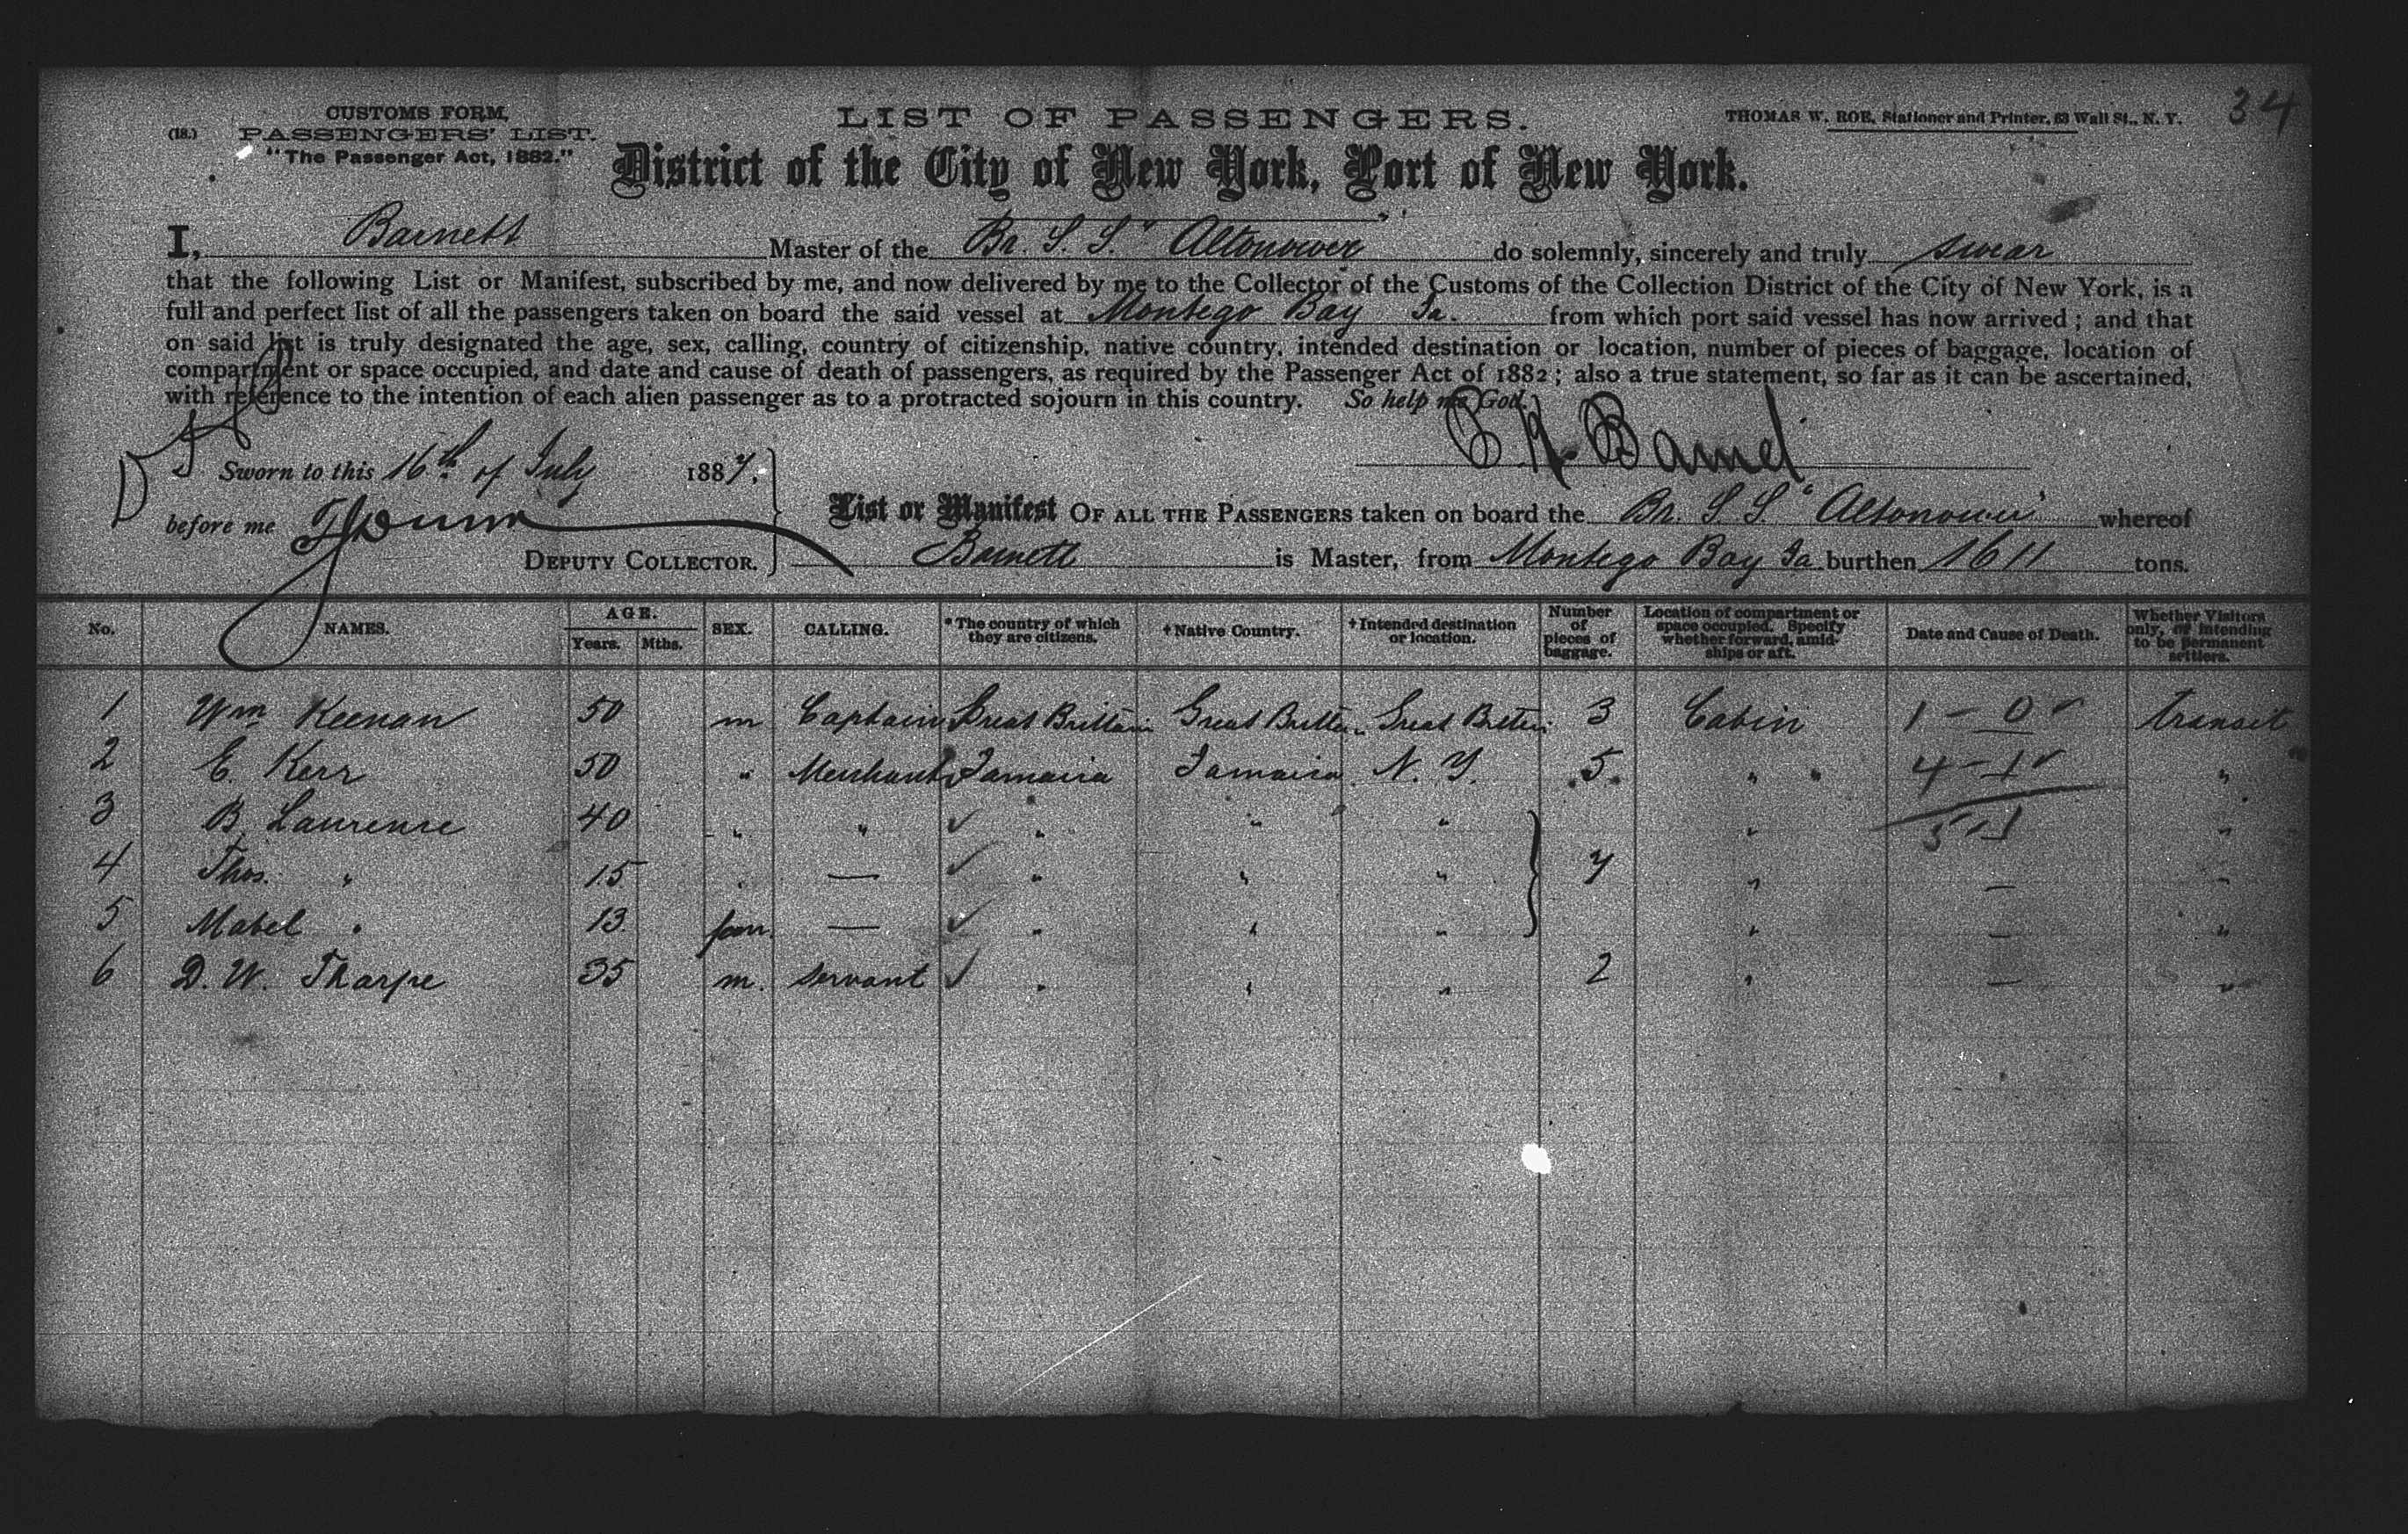 34
CUSTOMS FORM,
(18.) PASSENGERS' LIST.
"The Passenger Act, 1882."
LIST OF PASSENGERS.
THOMAS W. ROE, Stationer and Printer, 63 Wall St., N. Y.
District of the City of New York, Port of New York.
I, Barnett Master of the Br. S. S. "Altonower do solemnly, sincerely and truly swear
that the following List or Manifest, subscribed by me, and now delivered by me to the Collector of the Customs of the Collection District of the City of New York, is a
full and perfect list of all the passengers taken on board the said vessel at Montego Bay Ja. from which port said vessel has now arrived; and that
on said list is truly designated the age, sex, calling, country of citizenship, native country, intended destination or location, number of pieces of baggage, location of
compartment or space occupied, and date and cause of death of passengers, as required by the Passenger Act of 1882; also a true statement, so far as it can be ascertained,
with reference to the intention of each alien passenger as to a protracted sojourn in this country. So help me God.
Sworn to this 16th of July 1887.
before me
DEPUTY COLLECTOR.
List or Manifest OF ALL THE PASSENGERS taken on board the Br. S. S. "Altonower" whereof
Barnett is Master, from Montego Bay Ja. burthen 1611 tons.
No. NAMES. AGE. Years. Mths. SEX. CALLING. *The country of which they are citizens. †Native Country. ‡Intended destination or location. Number of pieces of baggage. Location of compartment or space occupied. Specify whether forward, amidships or aft. Date and Cause of Death. Whether Visitors only, or intending to be permanent settlers.
1 Wm Keenan 50 m Captain Great Brittain Great Britta Great Brittai 3 Cabin 1 – 0 ✓ transit
2 E. Kerr 50 " Merchant Jamaica Jamaica N. Y. 5 " " 4 – 1 ✓ "
3 B. Laurence 40 " " ✓ " " " " 5 – 1 "
4 Thos. " 15 " — ✓ " " " 7 " — "
5 Mabel " 13 fem. — ✓ " " " " — "
6 D. W. Tharpe 35 m. servant ✓ " " " 2 " — "